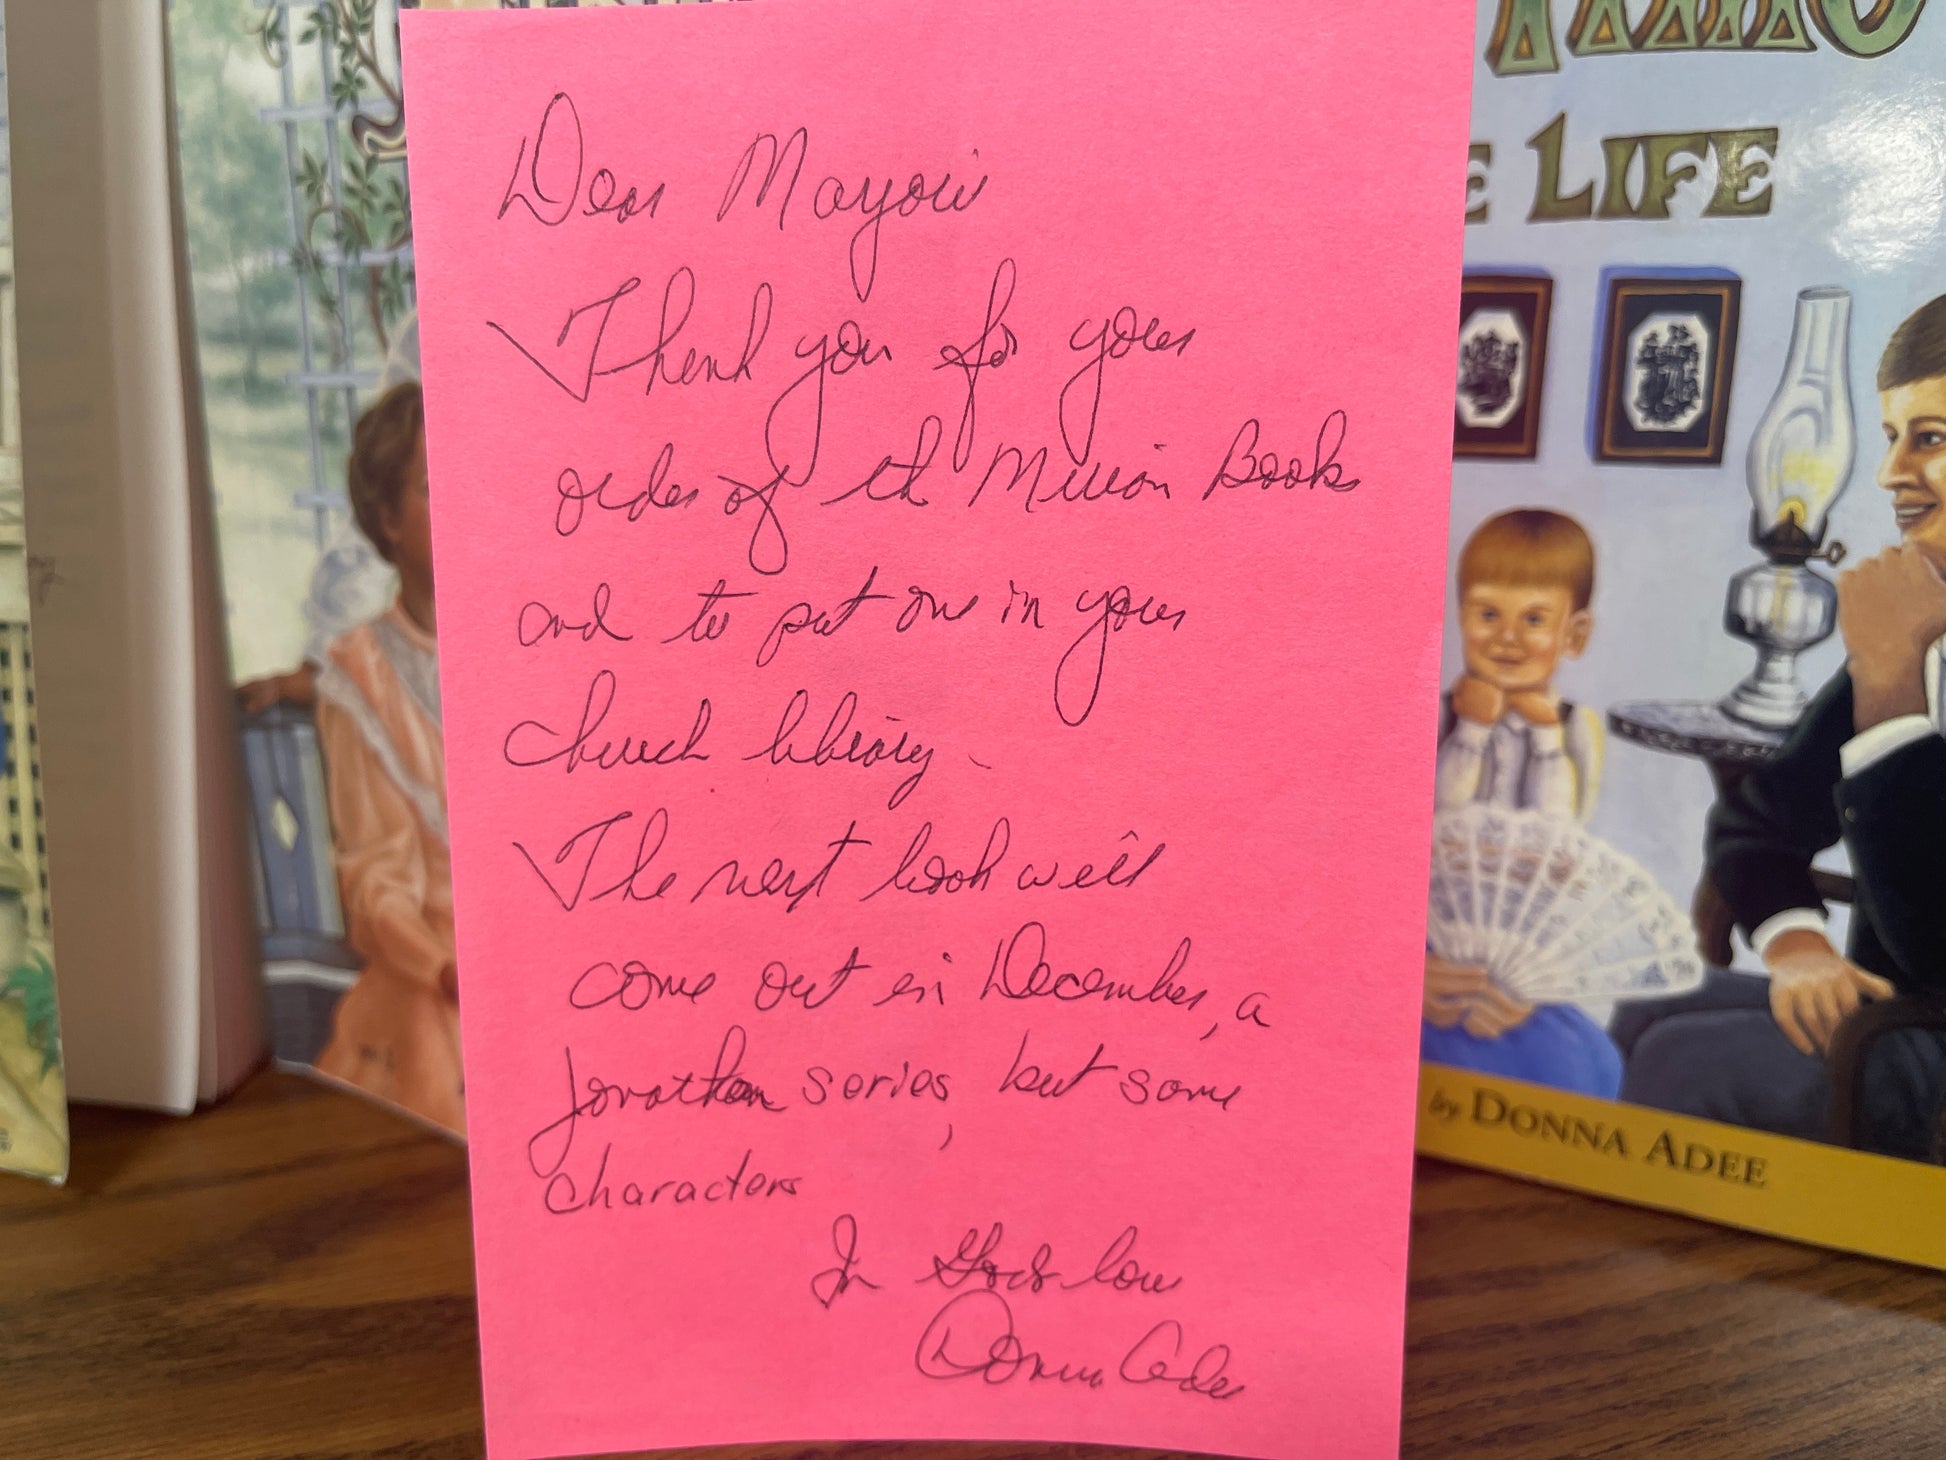 Dear Marjorie
Thank you for your
order of the Million Books
and to put one in your
church library.
The next book will
come out in December, a
Jonathan series, but some
characters
In Gods love
Donna Adee
E LIFE
by DONNA ADEE